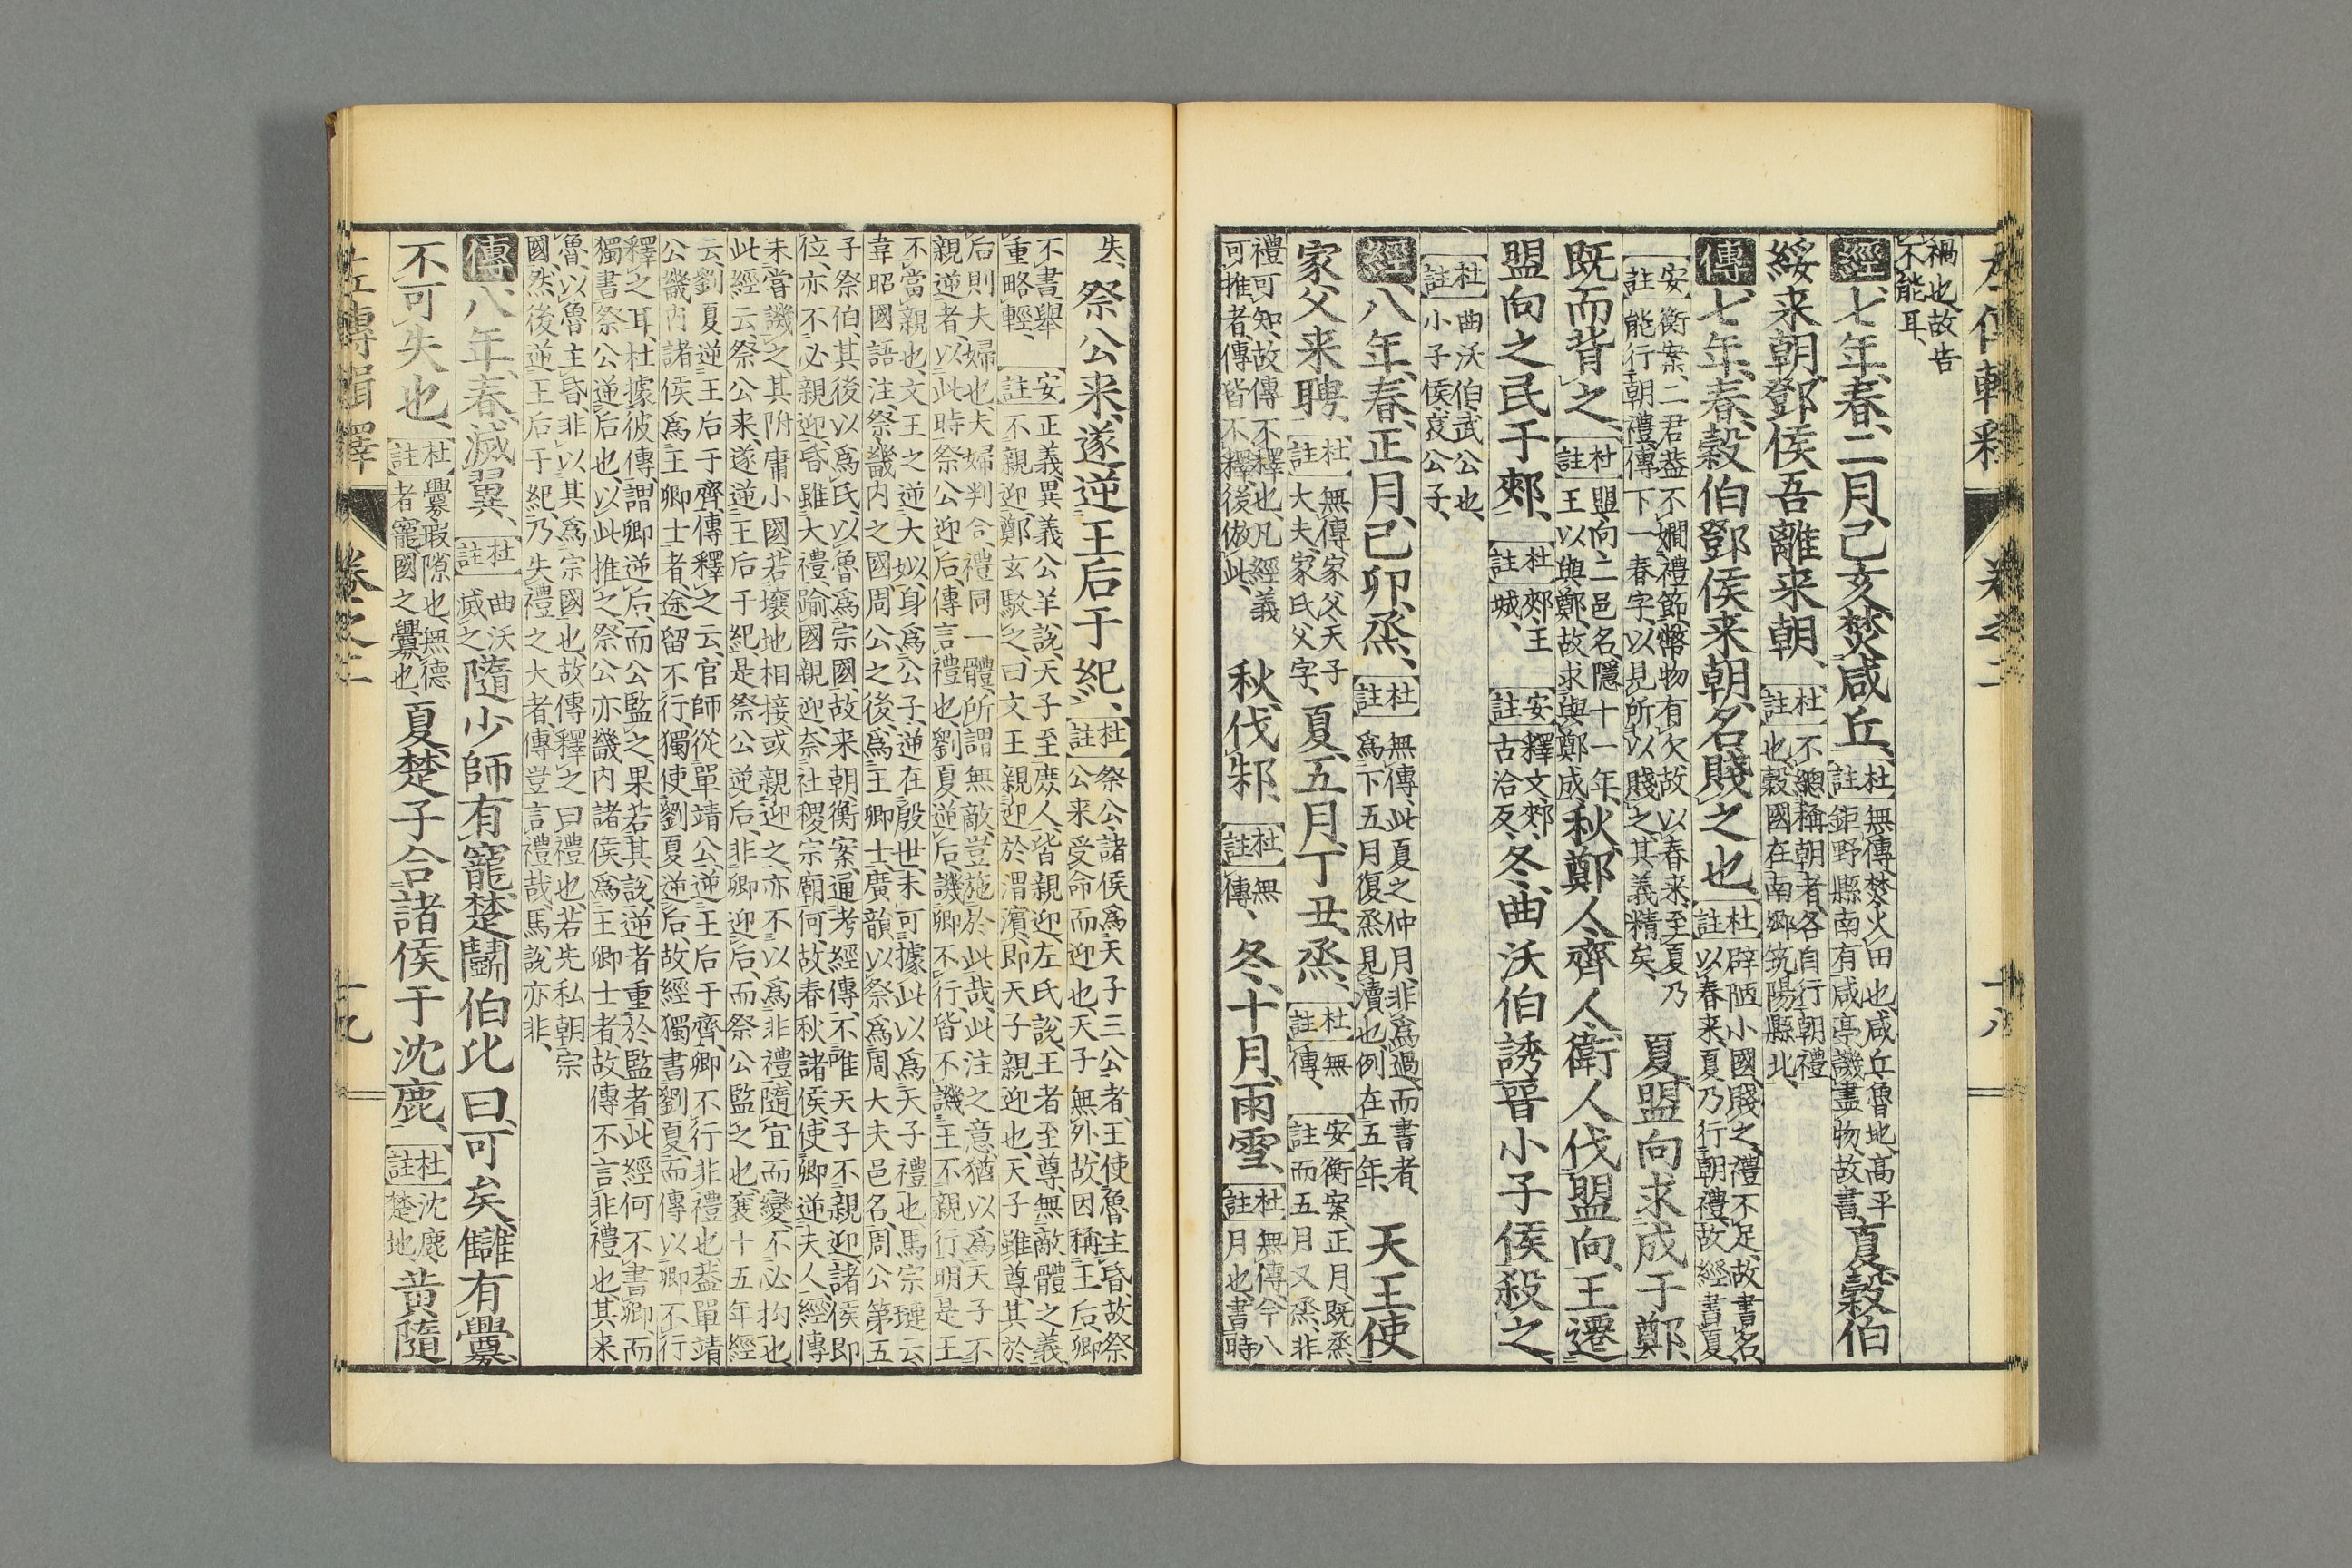 左傳輯釋 卷之二 十八
禍也故告
不能耳、
經七年、春、二月、己亥、焚咸丘、
杜註 無傳、焚、火田也、咸丘、魯地、高平
鉅野縣南有咸亭、譏盡物、故書、
夏、穀伯
綏来朝、鄧侯吾離来朝、
杜註 不總稱朝者、各自行朝禮
也、穀國在南鄉筑陽縣北、
傳七年、春、穀伯鄧侯来朝、名賤之也、
杜註 辟陋小國、賤之、禮不足、故書名、
以春来、夏乃行朝禮、故經書夏
安註 衡案、二君蓋不嫺禮節、幣物有欠、故以春来、至夏乃
能行朝禮、傳下一春字、以見所以賤之、其義精矣、
夏、盟向求成于鄭、
既而背之、
杜註 盟向、二邑名、隱十一年、
王以與鄭、故求與鄭成、
秋、鄭人齊人衛人伐盟向、王遷
盟向之民于郟、
杜註 郟、王
城、
安註 釋文、郟、
古洽反、
冬、曲沃伯誘晉小子侯殺之、
杜註 曲沃伯、武公也、
小子侯、哀公子、
經八年、春、正月、己卯、烝、
杜註 無傳、此夏之仲月、非爲過、而書者、
爲下五月復烝見瀆也、例在五年、
天王使
家父来聘、
杜註 無傳、家父、天子
大夫、家氏、父字、
夏、五月、丁丑、烝、
杜註 無
傳、
安註 衡案、正月、既烝、
而五月又烝、非
禮可知、故傳不釋也、凡經義
可推者、傳皆不釋、後倣此、
秋、伐邾、
杜註 無
傳、
冬、十月、雨雪、
杜註 無傳、今八
月也、書時
失、
祭公来、遂逆王后于紀、
杜註 祭公、諸侯爲天子三公者、王使魯主昏、故祭
公来受命而迎也、天子無外、故因稱王后、卿
不書、舉
重略輕、
安註 正義、異義公羊說、天子至庶人、皆親迎、左氏說、王者至尊無敵、體之義、
不親迎、鄭玄駁之、曰、文王親迎於渭濱、即天子親迎也、天子雖尊、其於
后則夫婦也、夫婦判合、禮同一體、所謂無敵、豈施於此哉、此注之意、猶以爲天子不
親逆者、以此時祭公迎后、傳言禮也、劉夏逆后、譏卿不行、皆不譏王不親行、明是王
不當親也、文王之逆大姒、身爲公子、逆在殷世、未可據此以爲天子禮也、馬宗璉云、
韋昭國語注、祭、畿内之國、周公之後、爲王卿士、廣韻、以祭爲周大夫邑名、周公第五
子祭伯、其後以爲氏、以魯爲宗國、故来朝、衡案、遍考經傳、不唯天子不親迎、諸侯即
位、亦不必親迎、昏雖大禮、踰國親迎、奈社稷宗廟何、故春秋諸侯、使卿逆夫人、經傳
未嘗譏之、其附庸小國、若壤地相接、或親迎之、亦不以爲非禮、隨宜而變、不必拘也、
此經云、祭公来、遂逆王后于紀、是祭公逆后、非卿迎后、而祭公監之也、襄十五年經
云、劉夏逆王后于齊、傳釋之云、官師從單靖公、逆王后于齊、卿不行、非禮也、蓋單靖
公畿内諸侯爲王卿士者、途留不行、獨使劉夏逆后、故經獨書劉夏、而傳以卿不行
釋之耳、杜據彼傳、謂卿逆后、而公監之、果若其說、逆者重於監者、此經何不書卿、而
獨書祭公逆后也、以此推之、祭公亦畿内諸侯爲王卿士者、故傳不言非禮也、其来
魯、以魯主昏、非以其爲宗國也、故傳釋之曰禮也、若先私朝宗
國、然後逆王后于紀、乃失禮之大者、傳豈言禮哉、馬說亦非、
傳八年、春、滅翼、
杜註 曲沃
滅之、
隨少師有寵、楚鬬伯比曰、可矣、讎有釁、
不可失也、
杜註 釁、瑕隙也、無德
者寵、國之釁也、
夏、楚子合諸侯于沈鹿、
杜註 沈鹿、
楚地、
黄隨
左傳輯釋 卷之二 十九